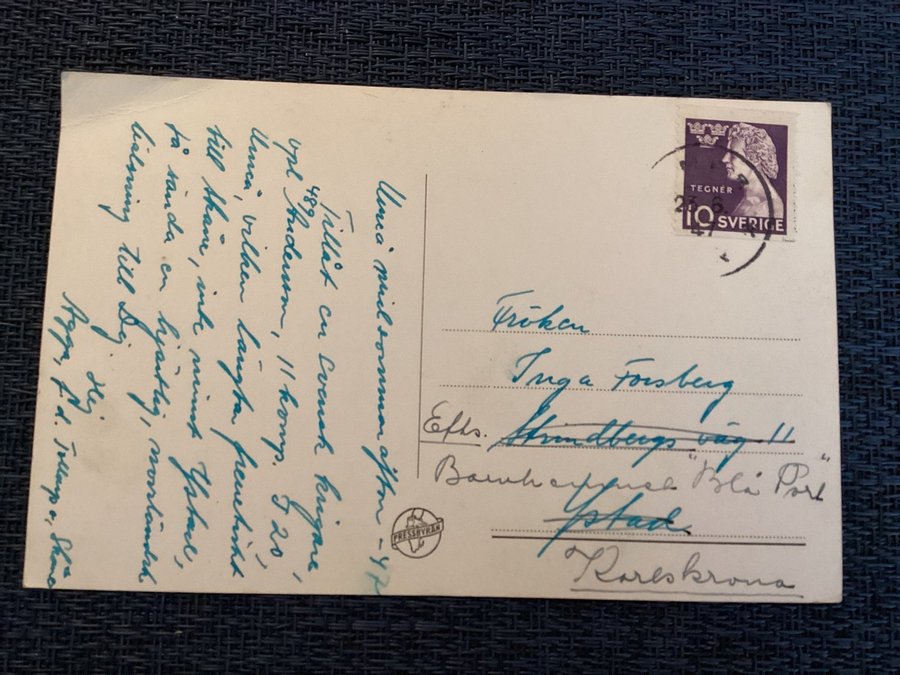 Umeå midsommarafton -47
Tillåt en svensk krigare,
vpl 489 Andersson, 11 komp. I 20,
Umeå, vilken längtar frenetiskt
till Skåne, inte minst Ystad,
få sända en hjärtlig, norrländsk
hälsning till Dej.
Hej
f.d. Skåne
TEGNÉR
10 SVERIGE
23 6
47
Fröken
Inga Forsberg
Efts. Strindbergs väg 11
"Blå Port"
Ystad
Karlskrona
PRESSBYRÅN